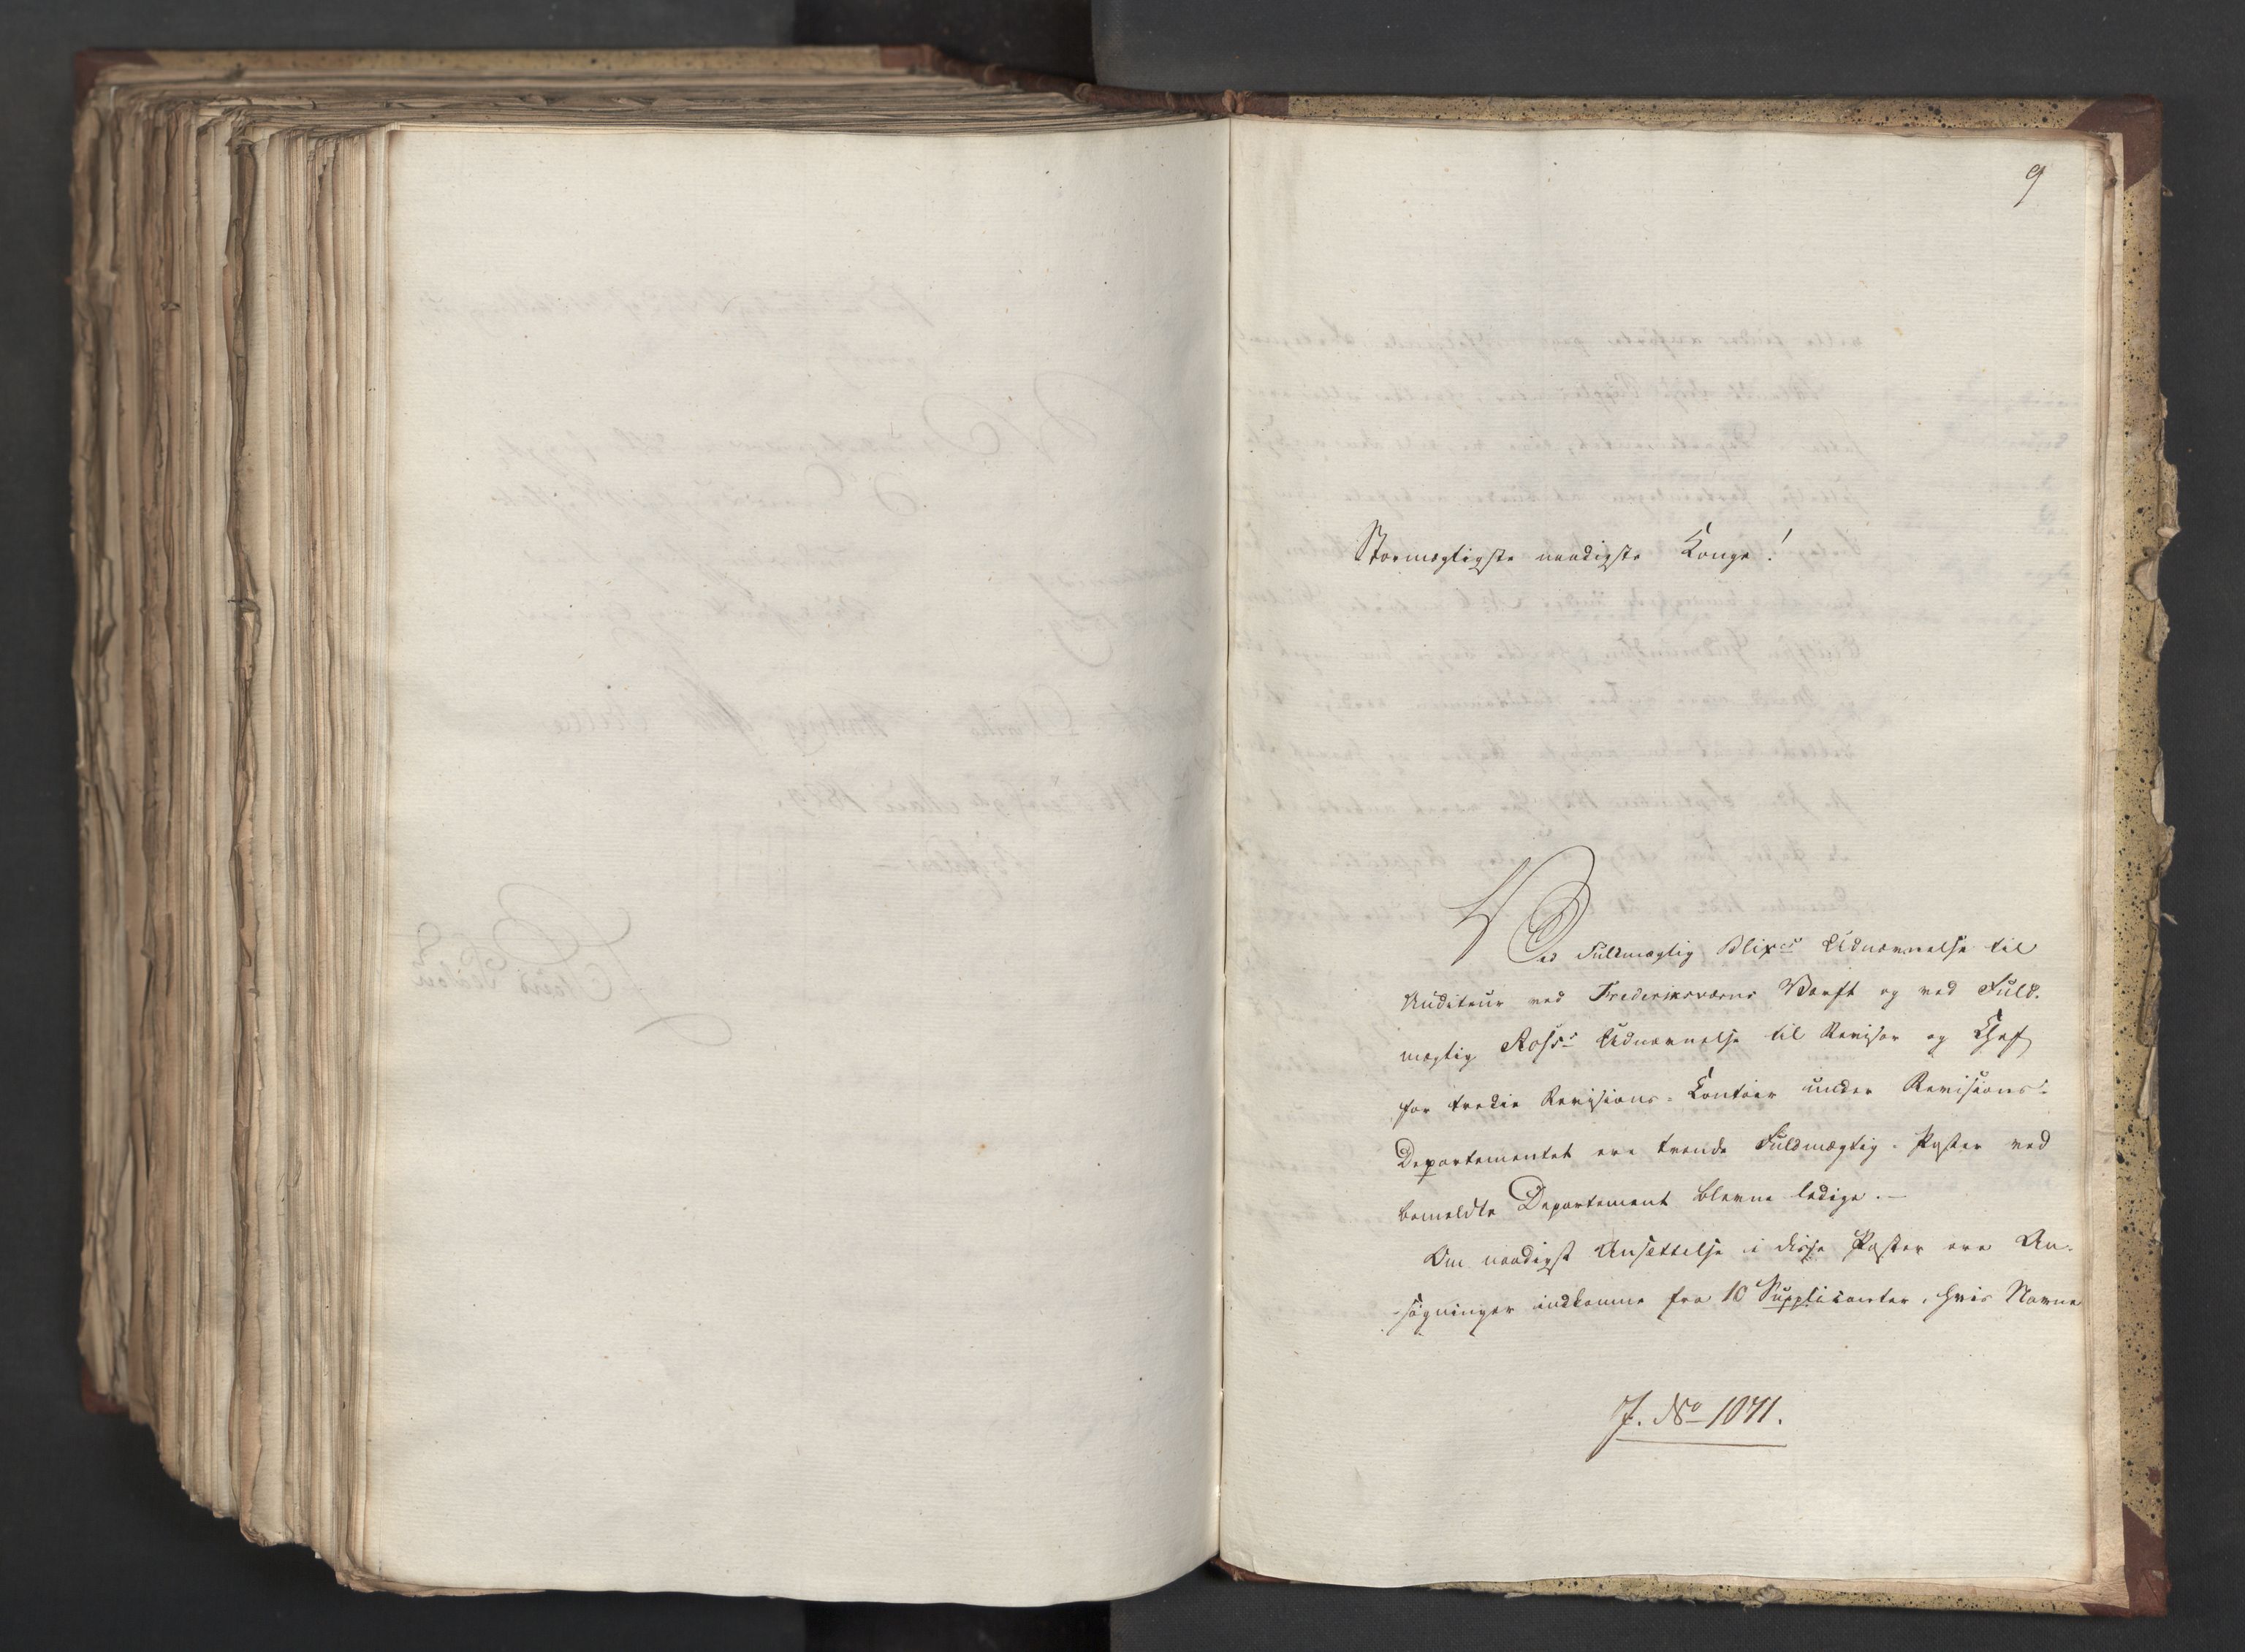 9
Stormægtigste naadigste Konge!
Ved Fuldmægtig Blix's Udnævnelse til
Auditeur ved Frederiksværns Værft og ved Fuld-
mægtig Ross's Udnævnelse til Revisor og Chef
for tredie Revisions-Contoir under Revisions-
Departementet ere tvende Fuldmægtig-Poster ved
bemeldte Departement blevne ledige.—
Om naadigst Ansættelse i disse Poster ere An-
søgninger indkomne fra 10 Supplicanter, hvis Navne
J. No 1071.